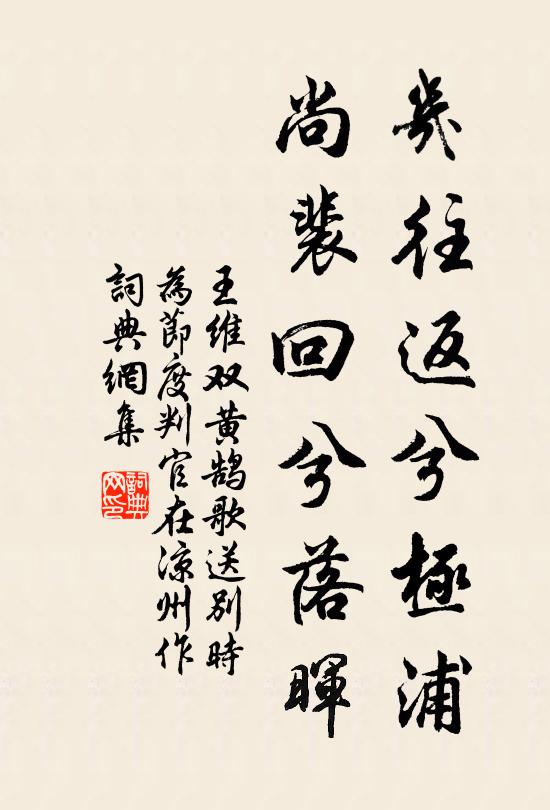 幾往返兮極浦
尚裴回兮落暉
王維双黄鵠歌送別時
為節度判官在涼州作
詞典網集
詞典網印